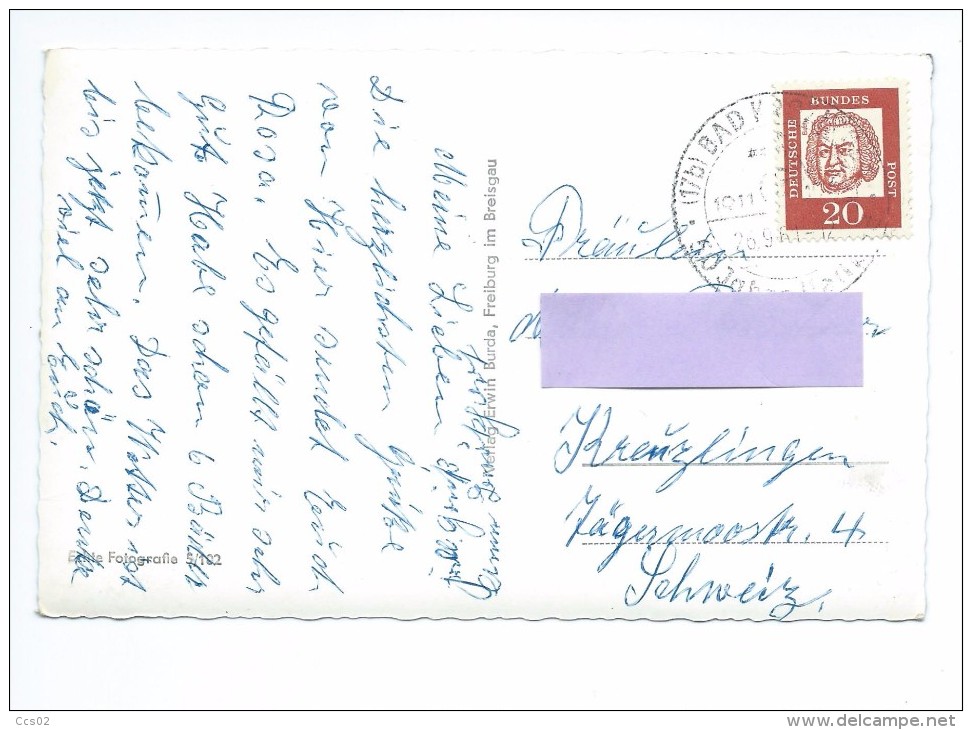 Meine Lieben
Die herzlichsten Grüße
von Hier sendet Euch
Rosa. Es gefällt mir sehr
Gut. Habe schon 6 Bäder
bekommen. Das Wetter ist
bis jetzt sehr schön. Denke
viel an Euch.
Echte Fotografie 5/102
Verlag Erwin Burda, Freiburg im Breisgau
(17b) BAD
26.9.61
DEUTSCHE BUNDES POST
20
Fräulein
Kreuzlingen
Jägermoostr. 4
Schweiz,
Ccs02
delcampe.net